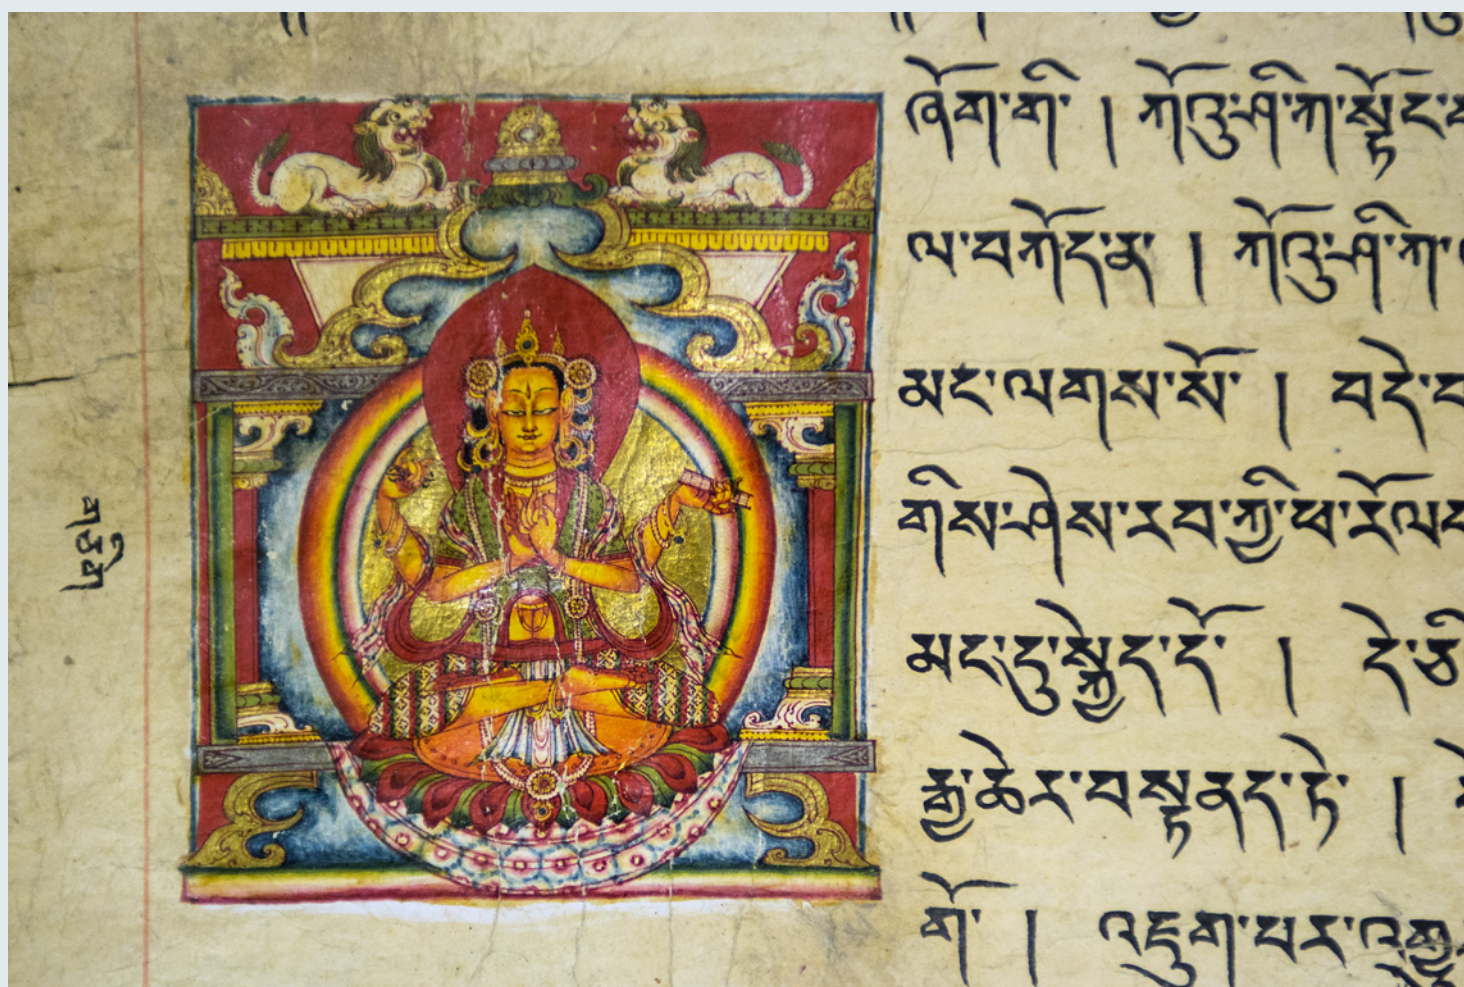 ཞོག་ག །ཀོའུ་ཤི་ཀ་སྟོང་
ལ་བཀོད་ན །ཀོའུ་ཤི་ཀ་
མང་ལགས་སོ །བདེ་བ
གིས་ཤེས་རབ་ཀྱི་ཕ་རོལ
མང་དུ་སྐྱེད་དོ །དེ་ཅི
རྒྱ་ཆེར་བསྟནད་ཏེ །
གོ །འདུག་པར་
གཅིག